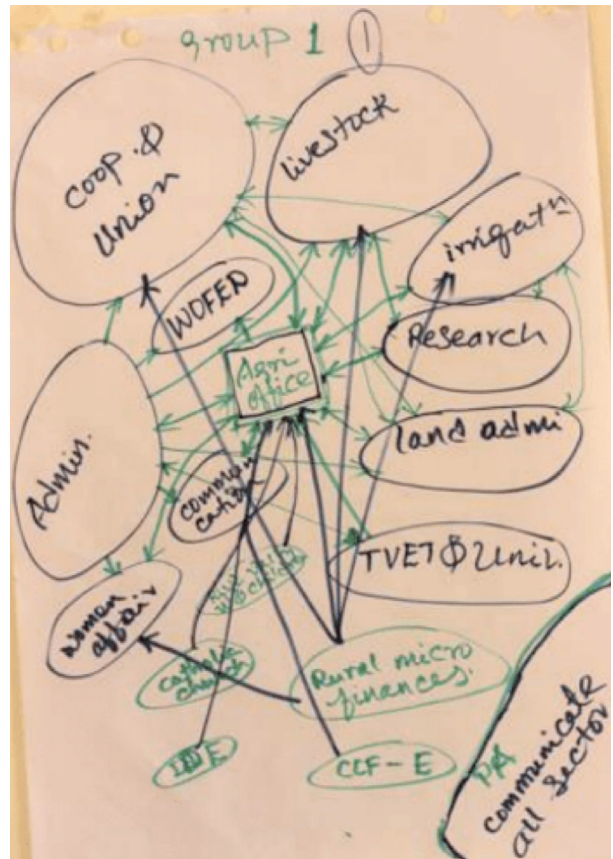 group 1 1
coop. &
Union
livestock
irrigatn
WOFED
Research
Agri
office
land admi
Admin.
commun
cation
TVET & Univ.
women
affair
catholic
church
Rural micro
finances.
CCF-E
DA
communicate
all sector